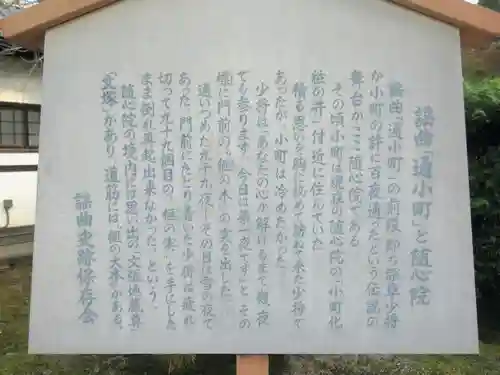 謡曲「通小町」と随心院
謡曲「通小町」の前段、即ち深草少将
が小町の許に百夜通ったという伝説の
舞台がここ随心院である。
その頃小町は現在の随心院の「小町化
粧の井」付近に住んでいた。
積る思いを胸に秘めて訪ねて来た少将で
あったが、小町は冷めたかった。
少将は「あなたの心が解けるまで幾夜
でも参ります。今日は第一夜です」と、その
標に門前の「榧の木」の実を出した。
通いつめた九十九夜、その日は雪の夜で
あった。門前にたどり着いた少将は疲れ
切って九十九個目の「榧の実」を手にした
まま倒れ再起出来なかった、という。
随心院の境内には思い出の「文張地蔵尊」
「文塚」があり、道筋には「榧の大木」がある。
謡曲史跡保存会